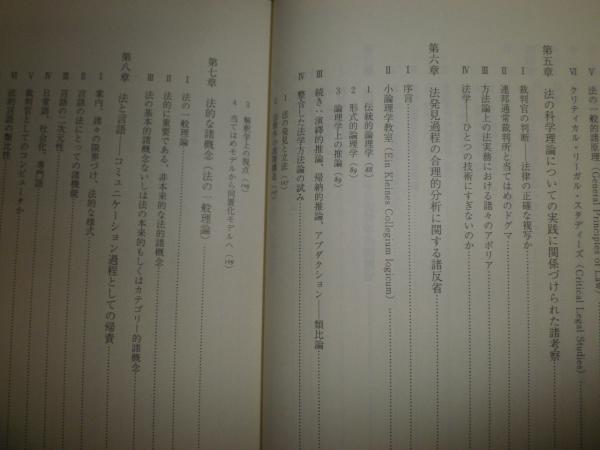 V 法の一般的諸原理（General Principles of Law）
VI クリティカル・リーガル・スタディーズ（Critical Legal Studies）
第五章 法の科学理論についての実践に関係づけられた諸考察
I 裁判官の判断――法律の正確な複写か
II 連邦通常裁判所と当てはめのドグマ
III 方法論上の法実務における諸々のアポリア
IV 法学――ひとつの技術にすぎないのか
第六章 法発見過程の合理的分析に関する諸反省
I 序言
II 小論理学教室（Ein Kleines Collegium logicum）
1 伝統的論理学
2 形式的論理学
3 論理学上の推論
III 続き：演繹的推論、帰納的推論、アブダクション――類比論
IV 整合した法学方法論の試み
1 法の発見と立法
2
3 解釈学上の視点
4 当てはめモデルから同置化モデルへ
第七章 法的な諸概念（法の一般理論）
I 法の一般理論
II 法的に重要である、非本来的な法的諸概念
III 法の基本的諸概念ないしは法の本来的もしくはカテゴリー的諸概念
第八章 法と言語――コミュニケーション過程としての帰責
I 案内、諸々の限界づけ、法的な様式
II 言語の法にとっての諸機能
III 言語の二次元性
IV 日常語、社会化、専門語
V 裁判官としてのコンピュータか
VI 法的言語の類比性